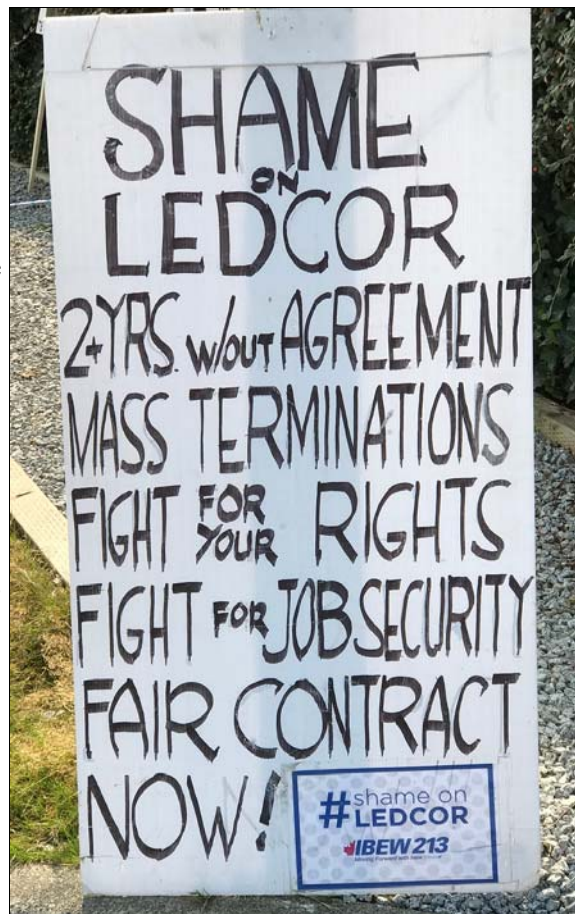 SHAME
ON
LEDCOR
2+YRS. w/out AGREEMENT
MASS TERMINATIONS
FIGHT FOR YOUR RIGHTS
FIGHT FOR JOB SECURITY
FAIR CONTRACT
NOW!
#shame on
LEDCOR
IBEW 213